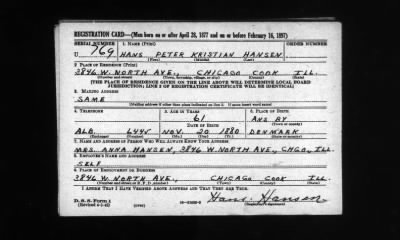 REGISTRATION CARD—(Men born on or after April 28, 1877 and on or before February 16, 1897)
SERIAL NUMBER 1. NAME (Print) ORDER NUMBER
U 769 HANS PETER KRISTIAN HANSEN
(First) (Middle) (Last)
2. PLACE OF RESIDENCE (Print)
3846 W. NORTH AVE., CHICAGO COOK ILL.
(Number and street) (Town, township, village, or city) (County) (State)
[THE PLACE OF RESIDENCE GIVEN ON THE LINE ABOVE WILL DETERMINE LOCAL BOARD
JURISDICTION; LINE 2 OF REGISTRATION CERTIFICATE WILL BE IDENTICAL]
3. MAILING ADDRESS
SAME
[Mailing address if other than place indicated on line 2. If same insert word same]
4. TELEPHONE 5. AGE IN YEARS 6. PLACE OF BIRTH
61 ANS BY
DATE OF BIRTH (Town or county)
ALB. NOV. 20 1880 DENMARK
(Exchange) (Number) (Mo.) (Day) (Yr.) (State or country)
7. NAME AND ADDRESS OF PERSON WHO WILL ALWAYS KNOW YOUR ADDRESS
MRS. ANNA HANSEN, 3846 W. NORTH AVE., CHGO., ILL.
8. EMPLOYER'S NAME AND ADDRESS
SELF
9. PLACE OF EMPLOYMENT OR BUSINESS
3846 W. NORTH AVE., CHICAGO COOK ILL.
(Number and street or R. F. D. number) (Town) (County) (State)
I AFFIRM THAT I HAVE VERIFIED ABOVE ANSWERS AND THAT THEY ARE TRUE.
D. S. S. Form 1 Hans Hansen
(over)